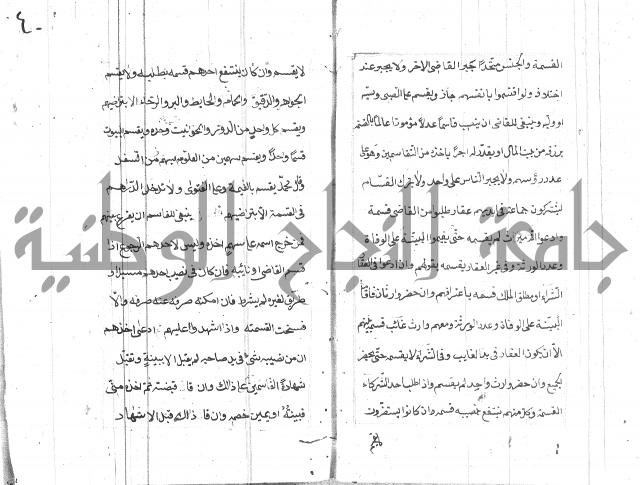 ٤٠
القسمة والجنس متحدًا جبر القاضي الاخر ولا يجبر عند
اختلافه ولو اقتسموا بانفسهم جاز ويقسم على الصبي وليه
او وصيه وينبغي للقاضي ان ينصب قاسمًا عدلًا مؤمونا عالمًا بالقسم
برزقه من بيت المال او يقدر له اجرًا ياخذه من المتقاسمين وهو على
عدد رؤسهم ولا يجبر الناس على واحد ولا يترك القسام
يشتركون جماعة في ايديهم عقار طلبوا من القاضي قسمة
وادعوا الميراث لم يقسمه حتى يقيموا البينة على الوفاة
وعدد الورثة وفي غير العقار يقسمه بقولهم وان ادعوا في العقار
الشراء او مطلق الملك قسمه باعترافهم وان حضر وارثان فاقاما
البينة على الوفاة وعدد الورثة ومعهم وارث غائب قسم بينهم
الا ان يكون العقار في يد الغايب وفي الشراء لا يقسم حتى يحضر
الجميع وان حضر وارث واحد لم يقسم واذا طلب احد الشركاء
القسمة وكل منهم ينتفع بنصيبه قسم وان كانوا يستضرون
لا يقسم وان كان ينتفع احدهم قسمه بطلبه ولا يقسم
الجواهر والرقيق والحمام والحايط والبير والرحاء الا بتراضيهم
ويقسم كل واحد من الدور والحوانيت وحده ويقسم البيوت
قسمًا واحدًا ويقسم سهمين من العلو بسهم من السفل
وقال محمد يقسم بالقيمة وعليه الفتوى ولا تدخل الدراهم
في القسمة الا بتراضيهم ينبغي للقاسم ان يقرع بينهم
فمن خرج اسمه على سهم اخذه وليس لاحدهم الرجوع اذا
قسم القاضي او نائبه فان كان في نصيب احدهم مسيل او
طريق لغيره لم يشترط فان امكنه صرفه عنه صرفه والا
فسخت القسمة واذا اشهدوا عليهم ادعى احدهم
ان من نصيبه شئ في يد صاحبه لم يقبل الا ببينة وتقبل
شهادة القاسمين على ذلك وان قال قبضته ثم اخذه مني
فبينة او يمين خصمه وان قال ذلك قبل الاشهاد
جامعة النجاح الوطنية